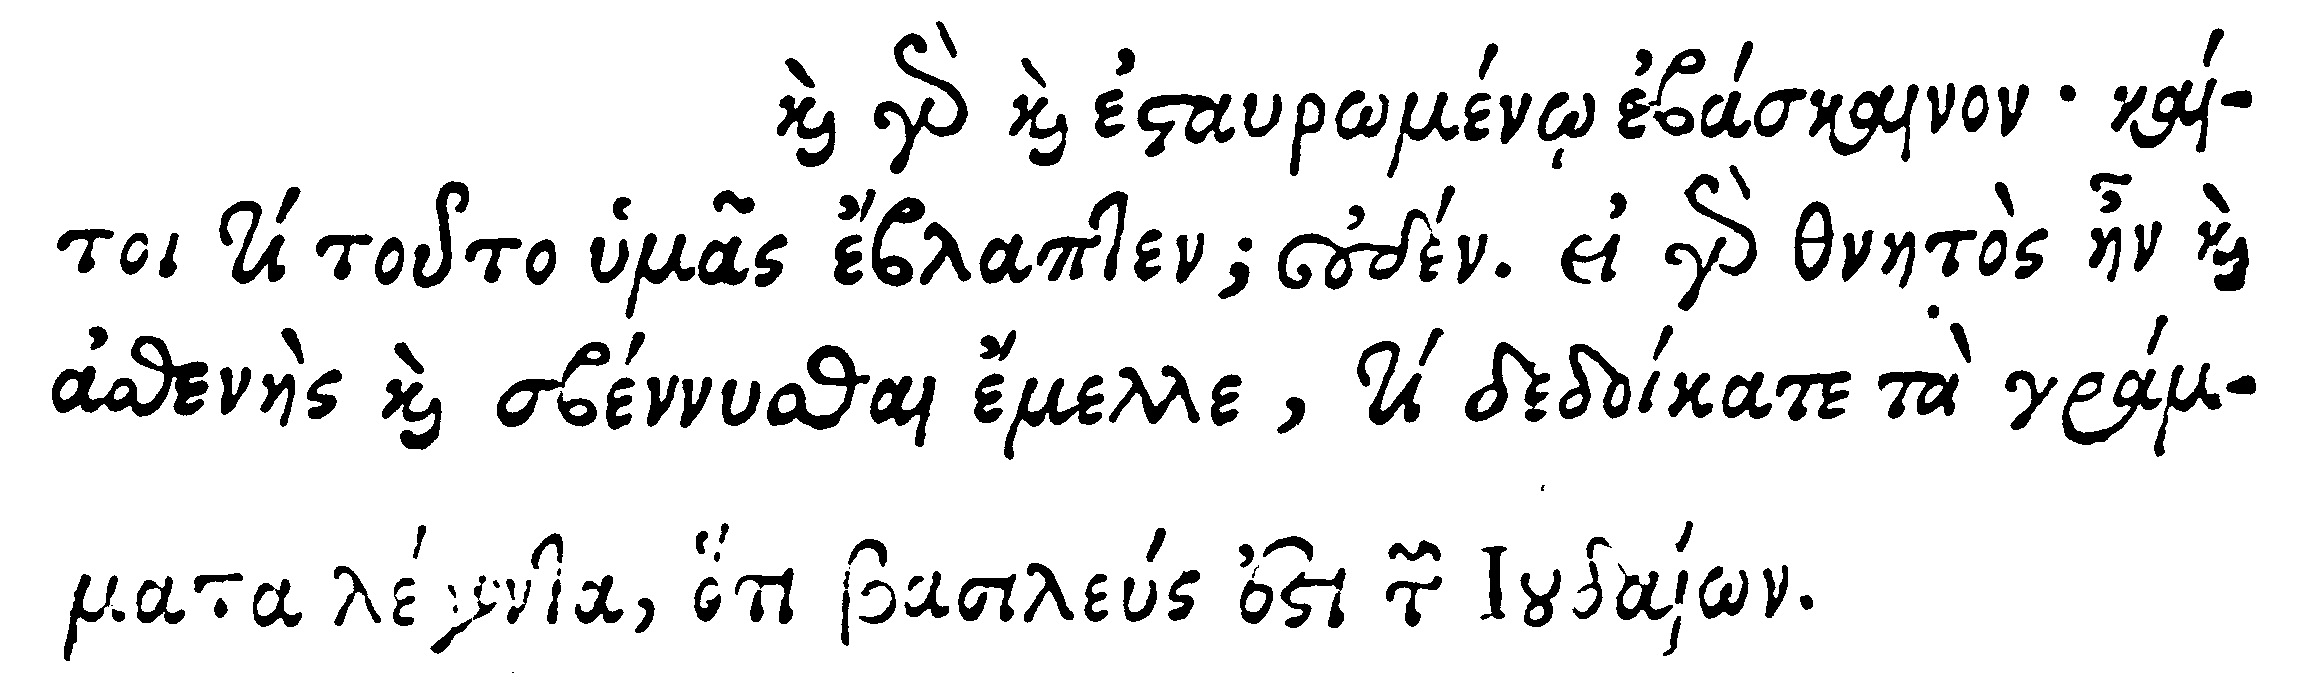 καὶ γὰρ καὶ ἐσταυρωμένῳ ἐβάσκαινον· καί-
τοι τί τοῦτο ὑμᾶς ἔβλαπτεν; οὐδέν. εἰ γὰρ θνητὸς ἦν καὶ
ἀσθενὴς καὶ σβέννυσθαι ἔμελλε, τί δεδοίκατε τὰ γράμ-
ματα λέγοντα, ὅτι βασιλεύς ἐστι τῶν Ἰουδαίων.